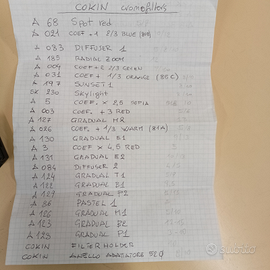 COKIN cromofilters
A 68 Spot red
A 021 COEF +1 2/3 BLUE (80B)
A 083 DIFFUSER 1
A 185 RADIAL ZOOM
A 004 COEF + 2 2/3 GREEN
A 031 COEF + 1/3 ORANGE (85C)
A 197 SUNSET 1
SK 230 Skylight
A 5 COEF. x 2,5 SEPIA
A 003 COEF + 3 RED
A 127 GRADUAL M2
A 026 COEF. + 1/3 WARM (81A)
A 130 GRADUAL E1
A 3 COEF x 4,5 RED
A 131 GRADUAL E2
A 084 DIFFUSER 2
A 124 GRADUAL T1
A 122 GRADUAL B1
A 129 GRADUAL P2
A 86 PASTEL 1
A GRADUAL M1
A 123 GRADUAL B2
A 128 GRADUAL P1
COKIN FILTER HOLDER
COKIN ANELLO ADATTATORE 52Ø
subito